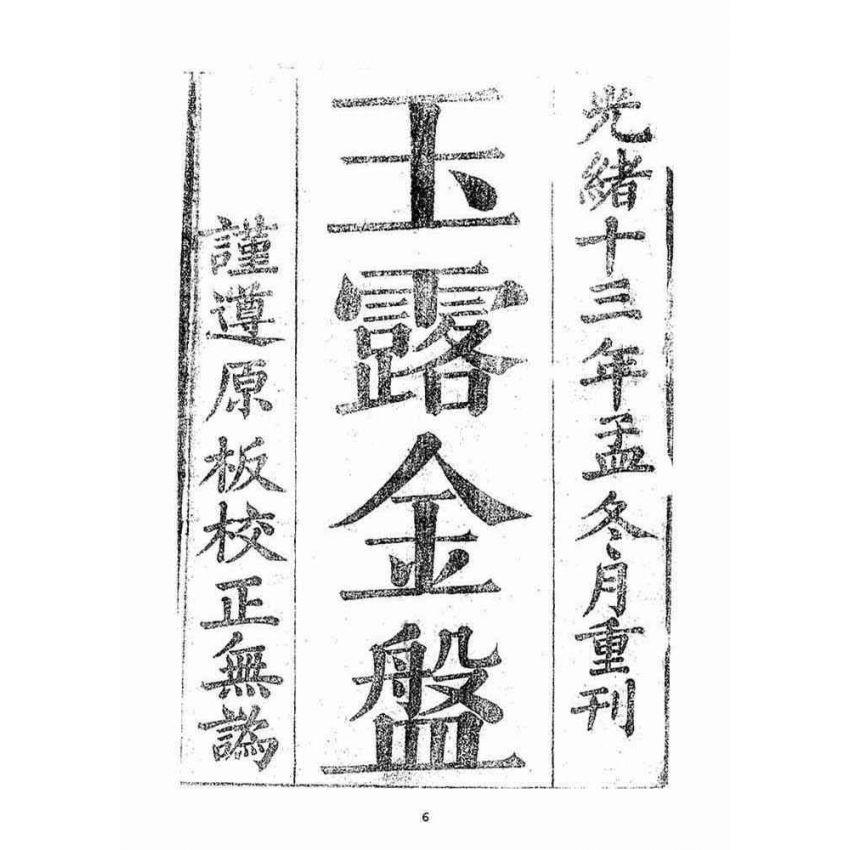 光緒十三年孟冬月重刊
玉露金盤
謹遵原板校正無譌
6